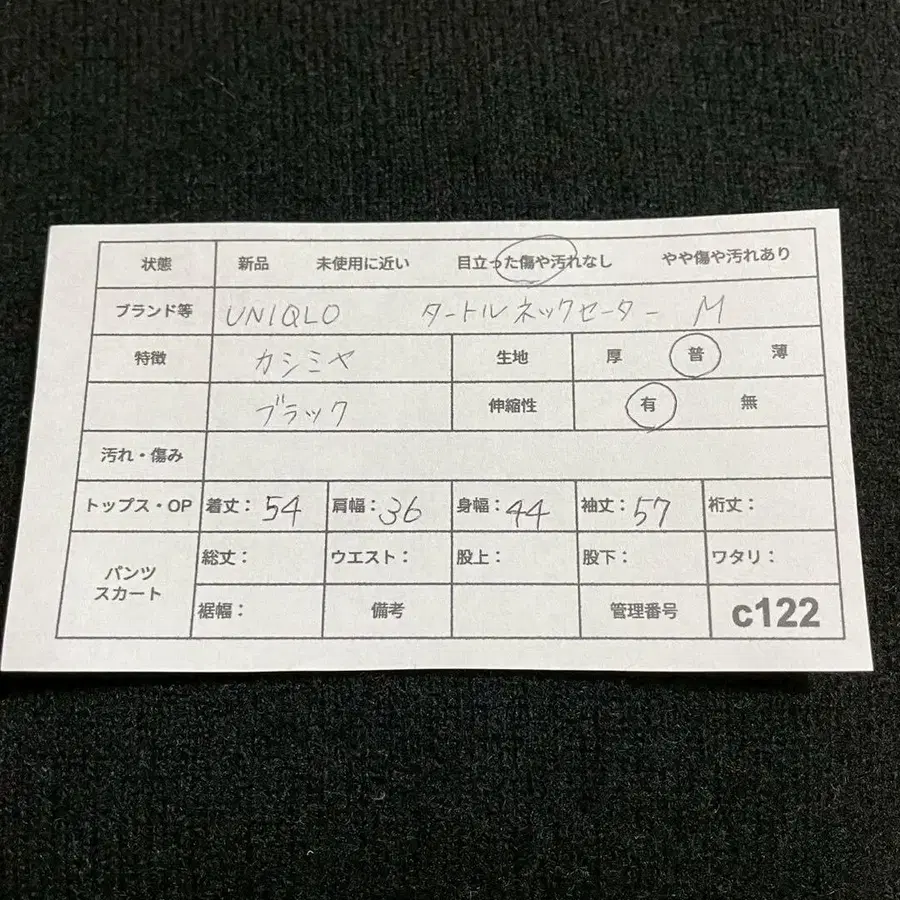 状態 新品 未使用に近い 目立った傷や汚れなし やや傷や汚れあり
ブランド等 UNIQLO タートルネックセーター M
特徴 カシミヤ 生地 厚 普 薄
ブラック 伸縮性 有 無
汚れ・傷み
トップス・OP 着丈: 54 肩幅: 36 身幅: 44 袖丈: 57 裄丈:
パンツ スカート 総丈: ウエスト: 股上: 股下: ワタリ:
裾幅: 備考 管理番号 c122